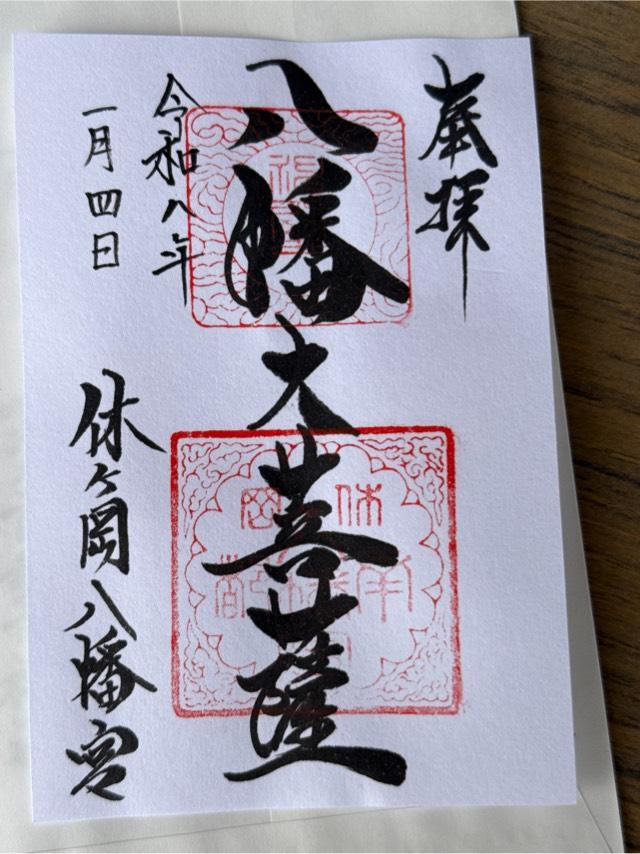 奉拝
八幡大菩薩
令和八年
一月四日
休ヶ岡八幡宮